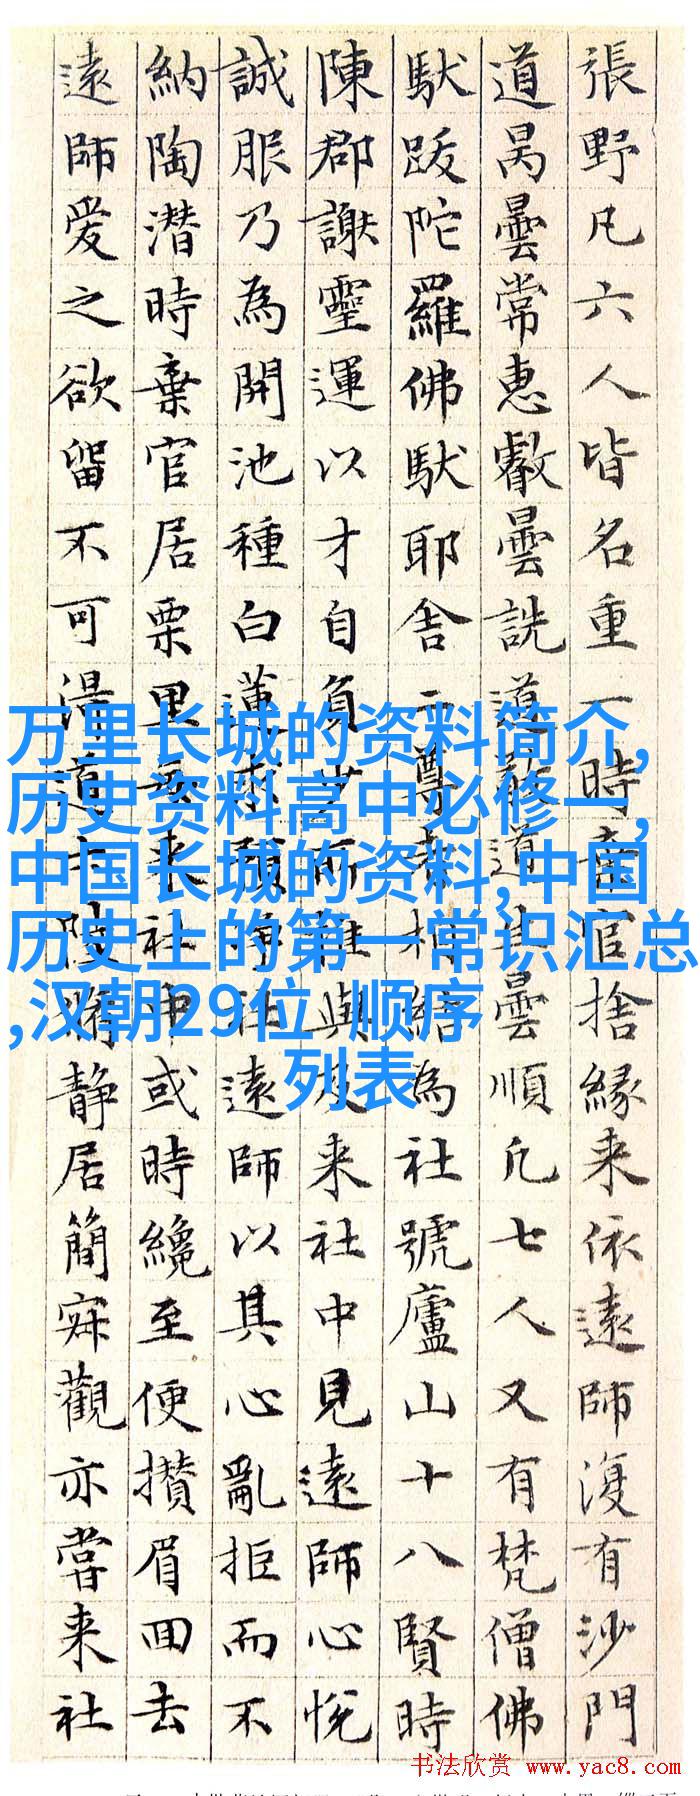 張野凡六人皆名重一時棄官捨緣来依遠師復有沙門
道昺曇常惠叡曇詵道敬道生曇順凡七人又有梵僧佛
馱跋陀羅佛馱耶舍二尊者相結為社號廬山十八賢時
陳郡謝靈運以才自負少所推與及来社中見遠師心悅
誠服乃為開池種白蓮求預淨社遠師以其心亂拒而不
納陶潛時棄官居栗里每来社中或時纔至便攢眉回去
遠師爱之欲留不可得道士陸脩静居簡寂觀亦嘗来社
万里长城的资料简介,
历史资料高中必修一,
中国长城的资料,中国
历史上的第一常识汇总
,汉朝29位 顺序
列表
书法欣赏 www.yac8.com